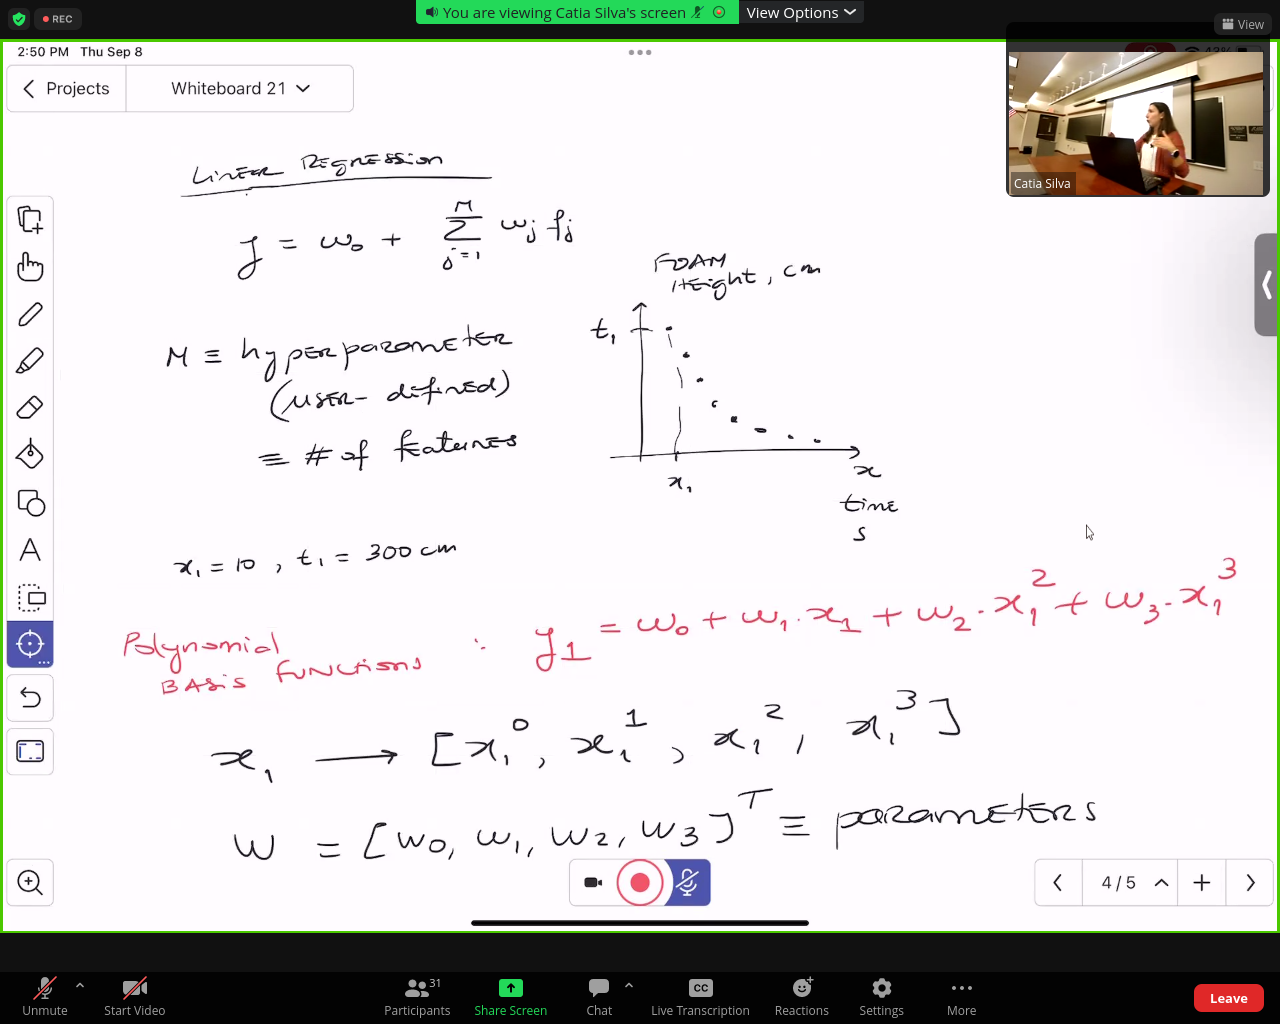 REC
You are viewing Catia Silva's screen
View Options
View
2:50 PM Thu Sep 8
Projects
Whiteboard 21
Catia Silva
Linear Regression
y = w₀ + Σ_{j=1}^{M} w_j f_j
FOAM
Height, cm
t₁
M ≡ hyperparameter
(user-defined)
≡ # of features
x₁
x
time
s
x₁ = 10 , t₁ = 300 cm
Polynomial
Basis Functions
: y₁ = w₀ + w₁·x₁ + w₂·x₁² + w₃·x₁³
x₁ → [x₁⁰, x₁¹, x₁², x₁³]
w = [w₀, w₁, w₂, w₃]ᵀ ≡ parameters
A
4 / 5
Unmute
Start Video
Participants
31
Share Screen
Chat
CC
Live Transcription
Reactions
Settings
More
Leave